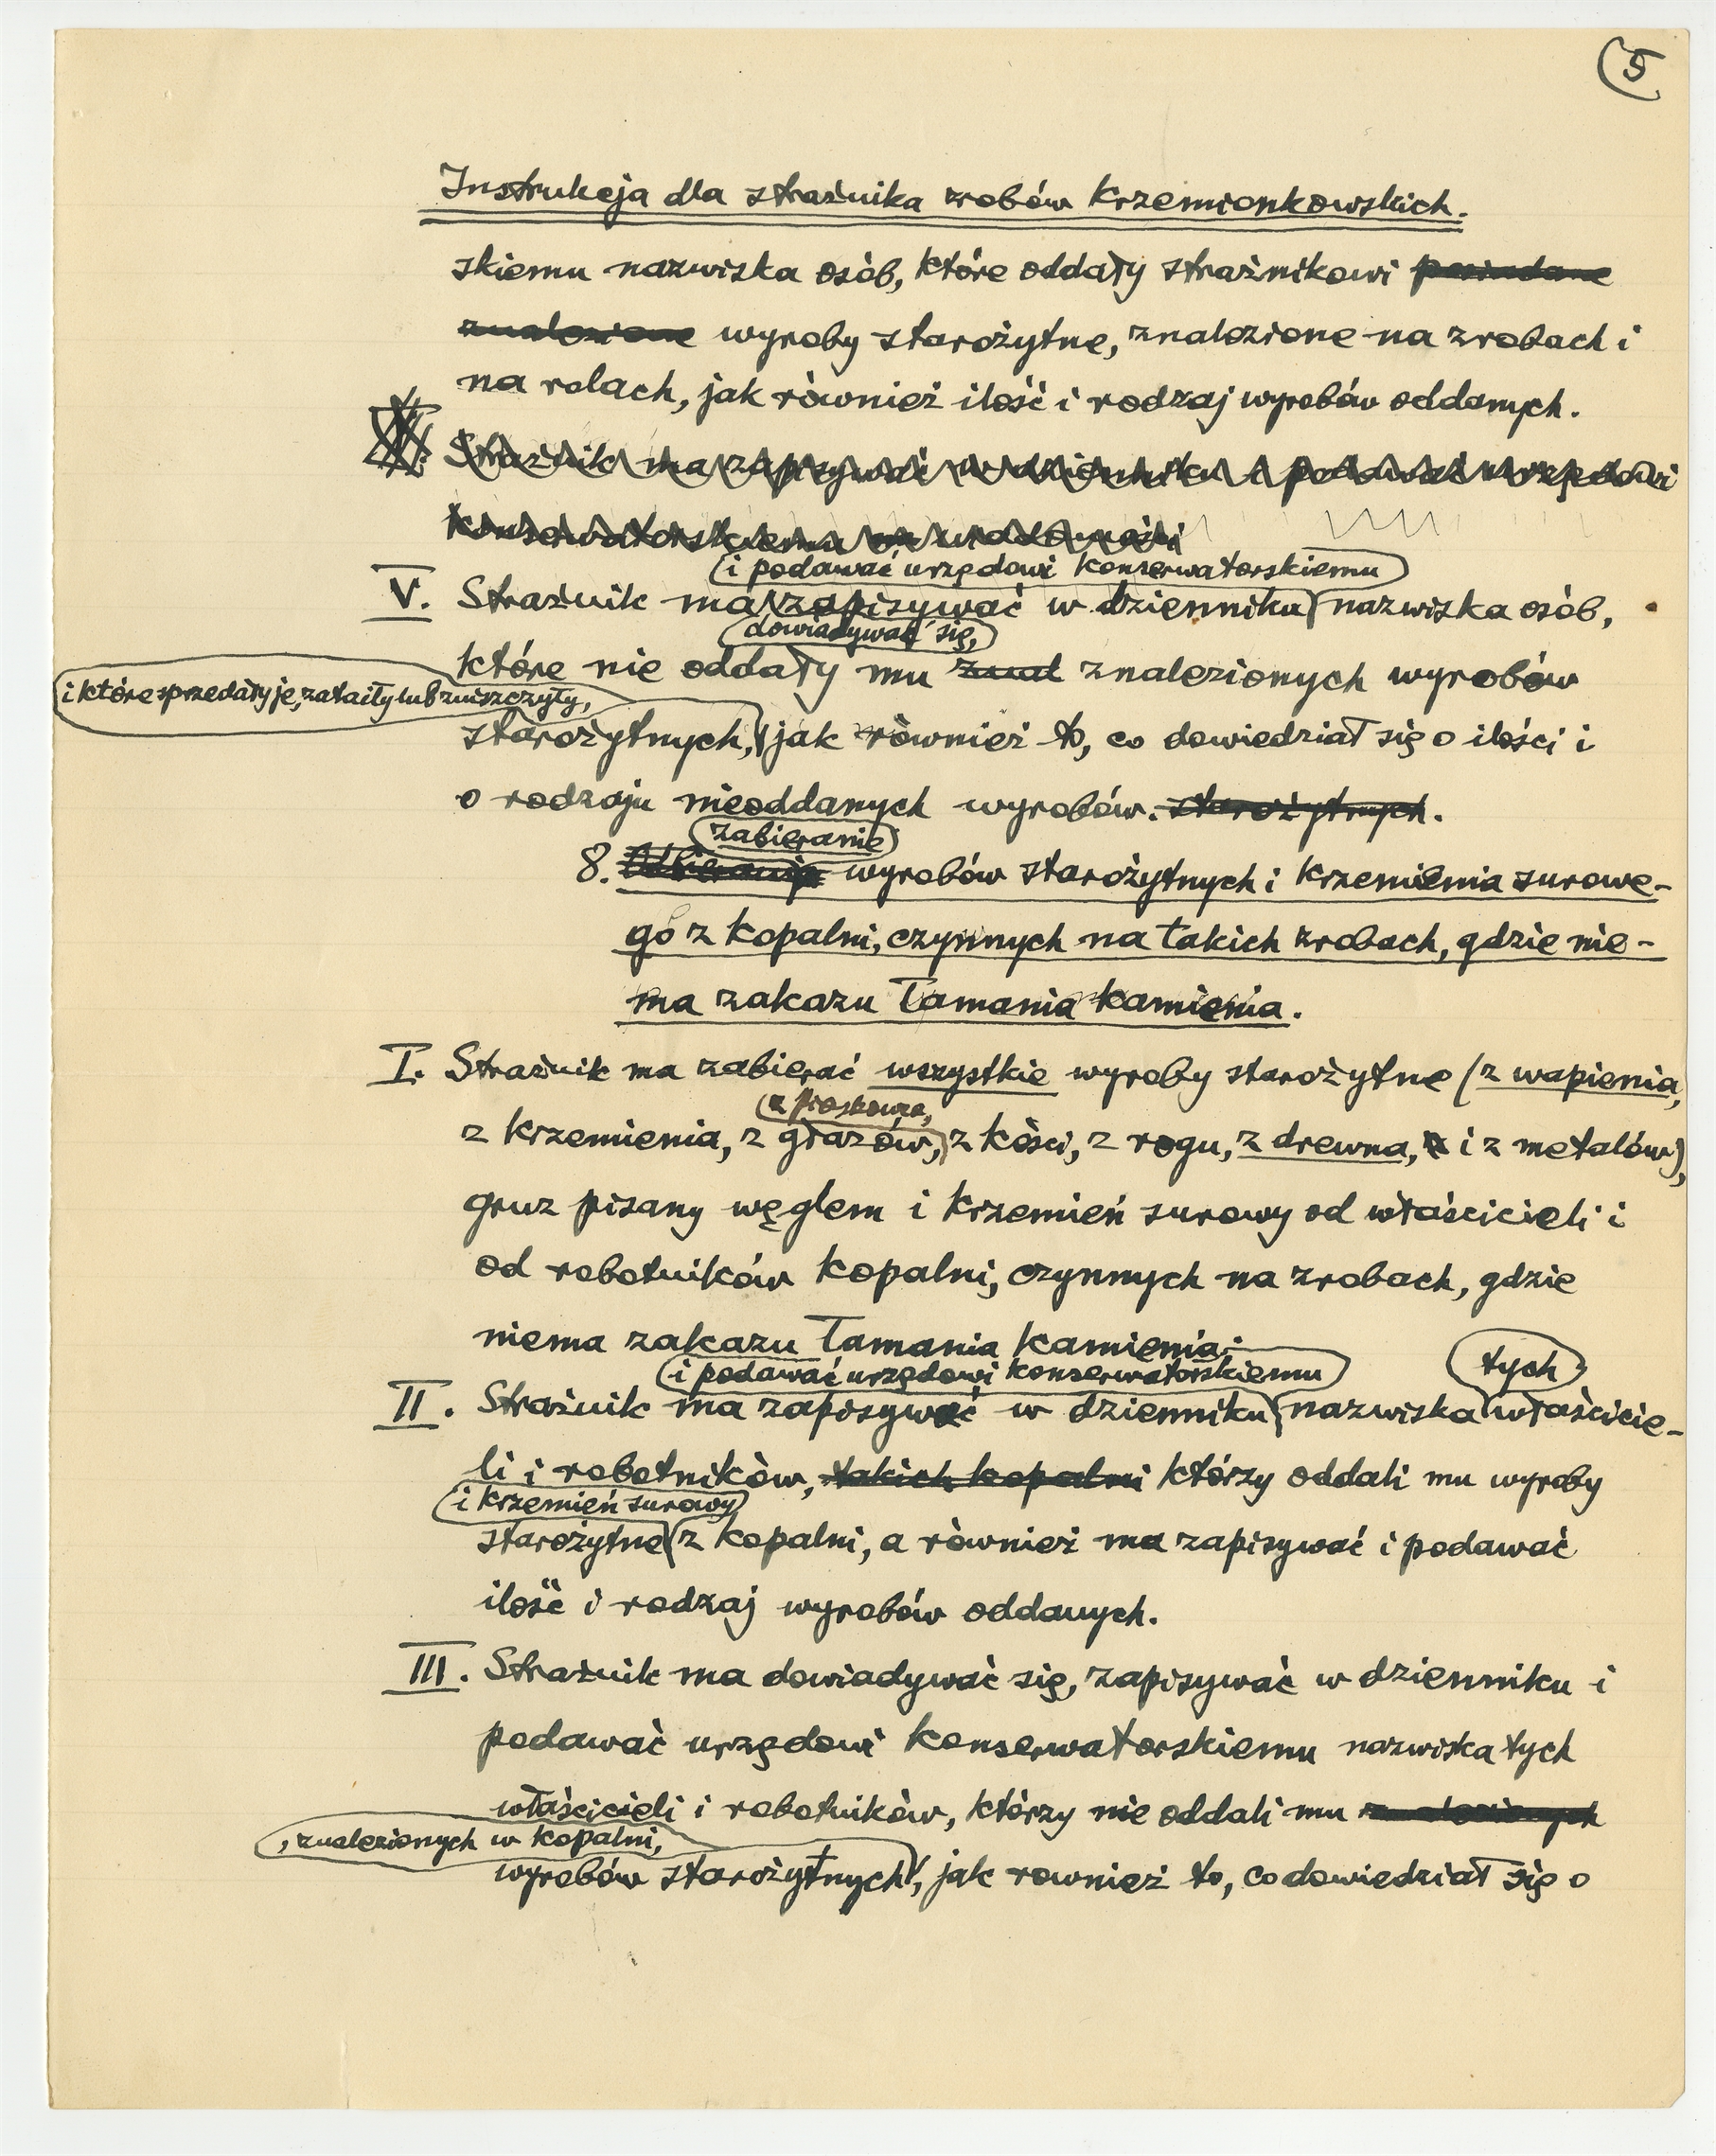 5
Instrukcja dla strażnika zrobów Krzemionkowskich.
skiemu nazwiska osób, które oddały strażnikowi posiadane
znalezione wyroby starożytne, znalezione na zrobach i
na rolach, jak również ilość i rodzaj wyrobów oddanych.
Strażnik ma zapisywać w dzienniku i podawać urzędowi
konserwatorskiemu wiadomości
i podawać urzędowi konserwatorskiemu
V. Strażnik ma zapisywać w dzienniku nazwiska osób,
dowiadywać się,
które nie oddały mu znal znalezionych wyrobów
i które sprzedały je, zataiły lub zniszczyły,
starożytnych, jak również to, co dowiedział się o ilości i
o rodzaju nieoddanych wyrobów. starożytnych.
zabieranie
8. Odbieranie wyrobów starożytnych i krzemienia surowe-
go z kopalni, czynnych na takich zrobach, gdzie nie-
ma zakazu łamania kamienia.
I. Strażnik ma zabierać wszystkie wyroby starożytne (z wapienia,
z piaskowca,
z krzemienia, z głazów, z kości, z rogu, z drewna, i z metalów),
gruz pisany węglem i krzemień surowy od właścicieli i
od robotników kopalni, czynnych na zrobach, gdzie
niema zakazu łamania kamienia;
i podawać urzędowi konserwatorskiemu tych
II. Strażnik ma zapisywać w dzienniku nazwiska właścicie-
li i robotników, takich kopalni którzy oddali mu wyroby
i krzemień surowy
starożytne z kopalni, a również ma zapisywać i podawać
ilość i rodzaj wyrobów oddanych.
III. Strażnik ma dowiadywać się, zapisywać w dzienniku i
podawać urzędowi konserwatorskiemu nazwiska tych
właścicieli i robotników, którzy nie oddali mu znalezionych
, znalezionych w kopalni,
wyrobów starożytnych, jak rownież to, co dowiedział się o